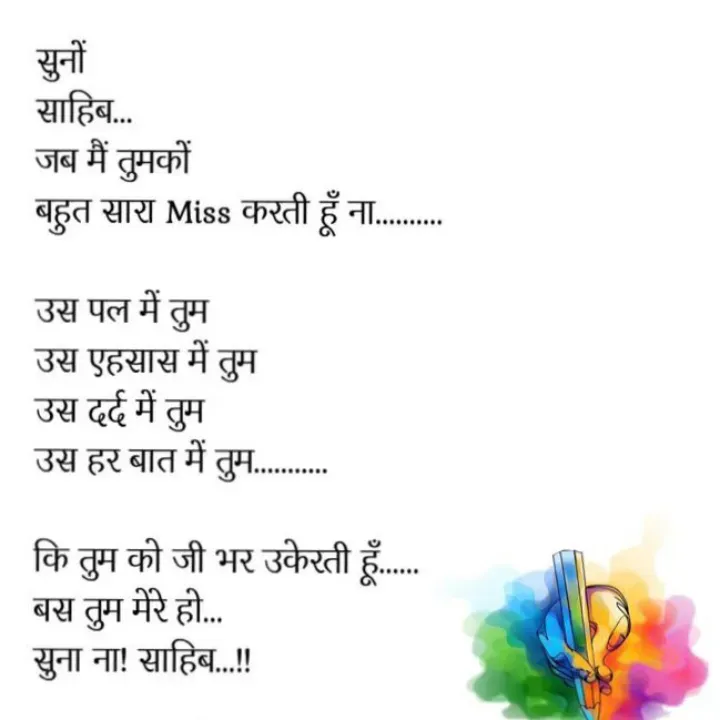 सुनों
साहिब...
जब मैं तुमकों
बहुत सारा Miss करती हूँ ना..........
उस पल में तुम
उस एहसास में तुम
उस दर्द में तुम
उस हर बात में तुम...........
कि तुम को जी भर उकेरती हूँ......
बस तुम मेरे हो...
सुना ना! साहिब...!!